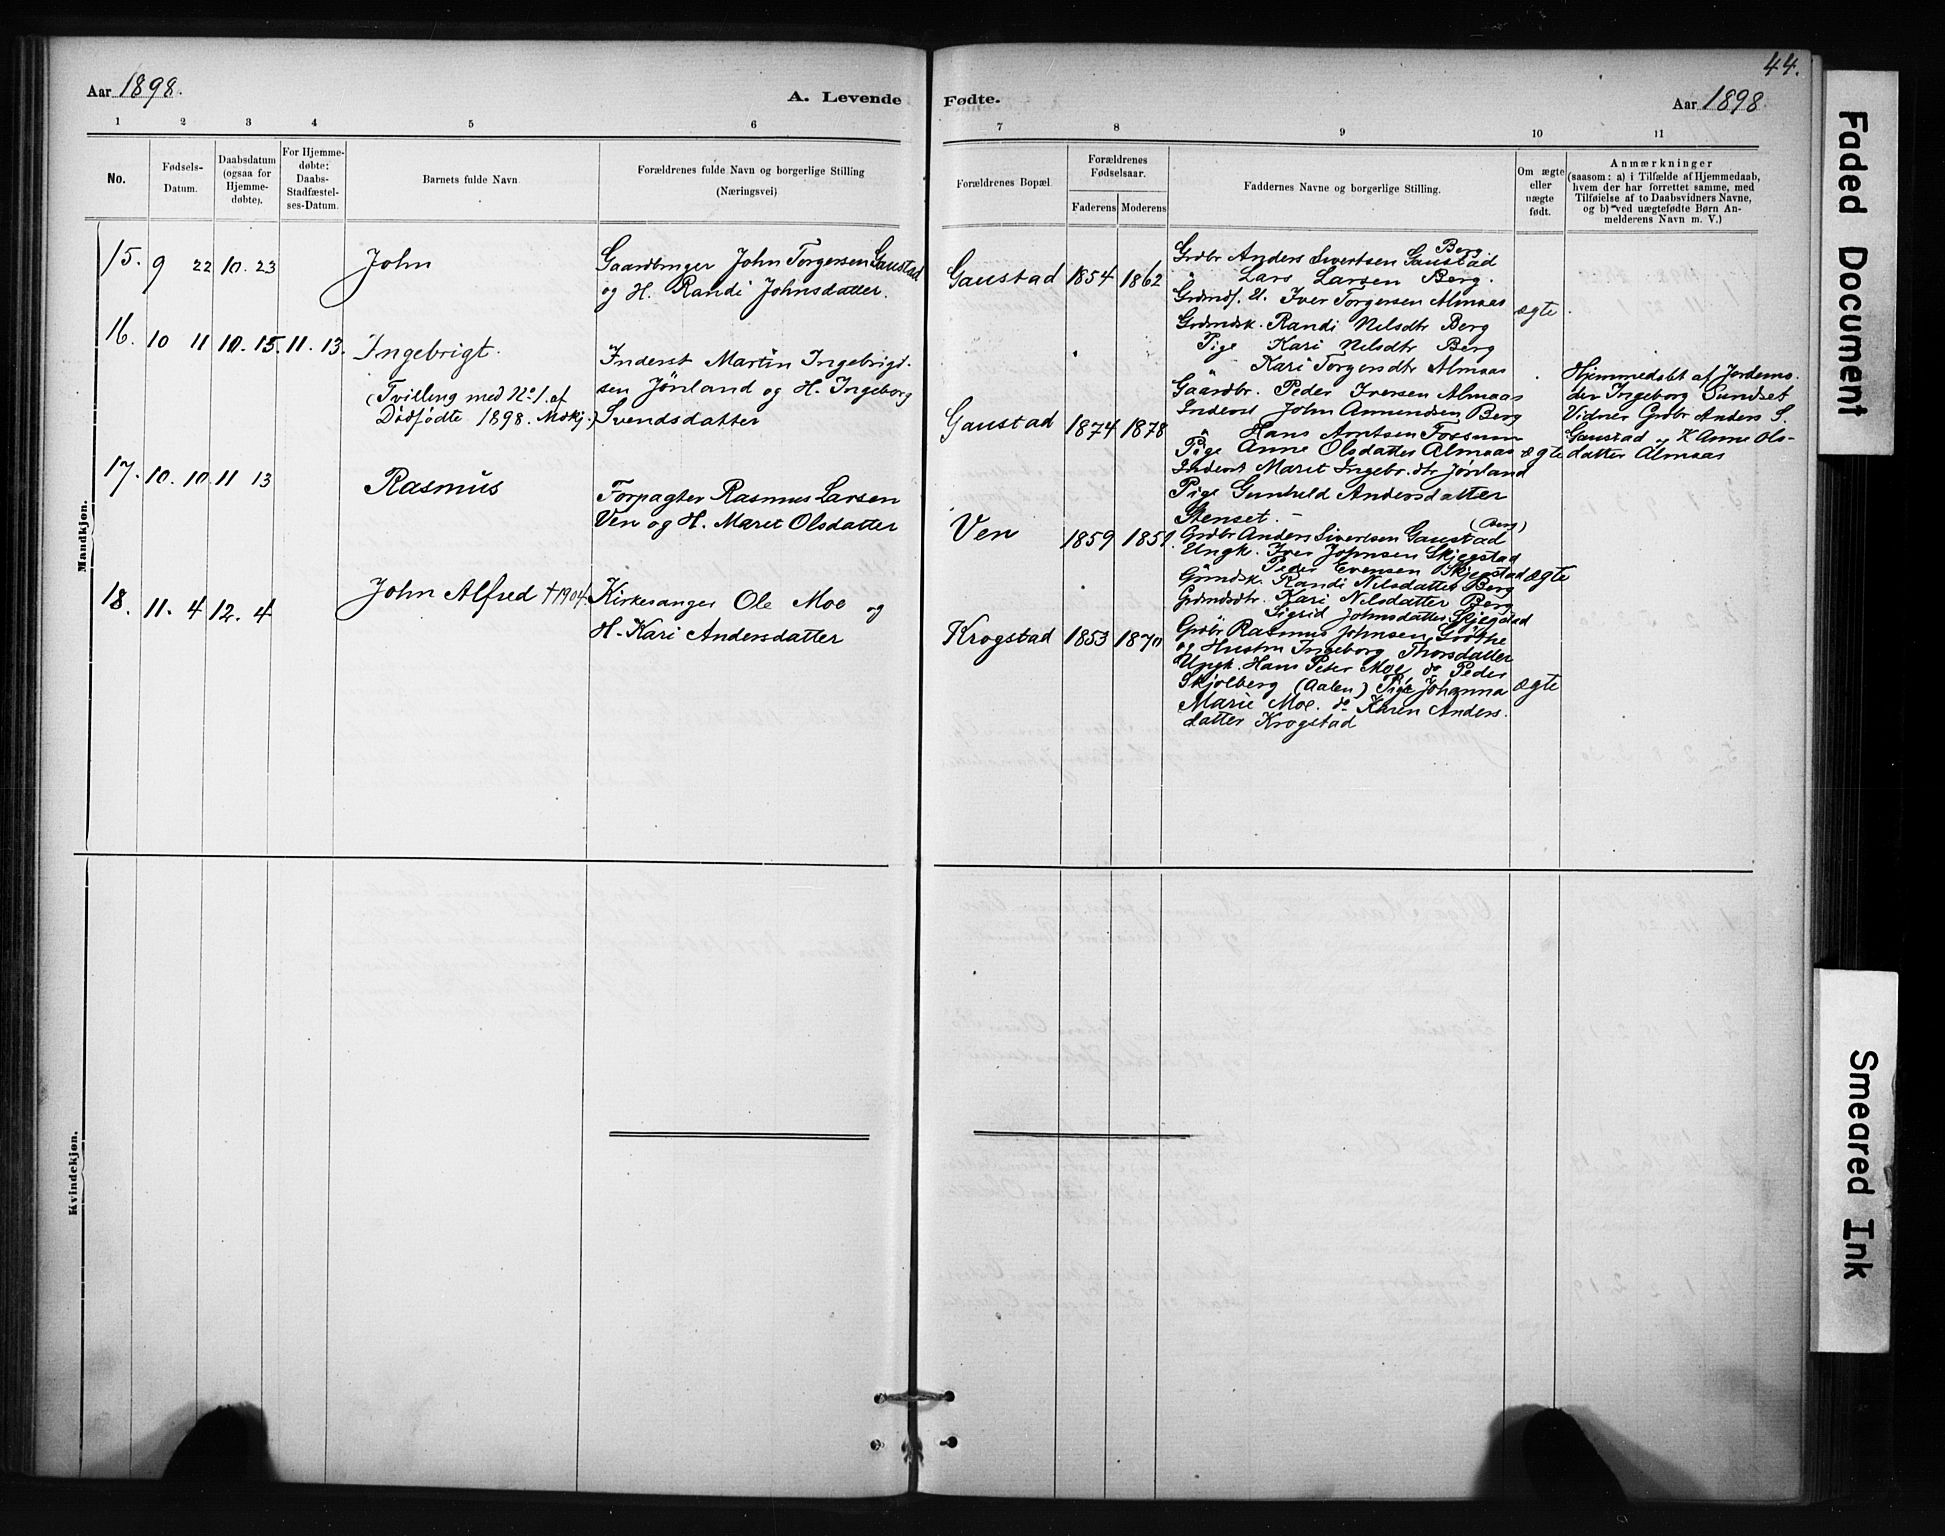 44.
Aar 1898.
A. Levende Fødte.
Aar 1898
1 2 3 4 5 6 7 8 9 10 11
No.
Fødsels-
Datum.
Daabsdatum
(ogsaa for
Hjemme-
døbte).
For Hjemme-
døbte:
Daabs-
Stadfæstel-
ses-Datum.
Barnets fulde Navn
Forældrenes fulde Navn og borgerlige Stilling
(Næringsvei)
Forældrenes Bopæl.
Forældrenes
Fødselsaar.
Faderens Moderens
Faddernes Navne og borgerlige Stilling.
Om ægte
eller
uægte
født.
Anmærkninger
(saasom: a) i Tilfælde af Hjemmedaab,
hvem der har forrettet samme, med
Tilføielse af to Daabsvidners Navne,
og b) ved uægtefødte Børn An-
melderens Navn m. V.)
Mandkjøn.
15. 9 22 10. 23
John
Gaardbruger John Torgersen Gaustad
og H. Randi Johnsdatter.
Gaustad 1854 1862
Berg
Grdbr Anders Sivertsen Gaustad
" Lars Larsen Berg.
Grdmdf. U. Iver Torgersen Almaas
Grdmdsk. Randi Nilsdtr Berg
Pige Kari Nilsdtr Berg
- Kari Torgersdtr Almaas
ægte
16. 10 11 10. 15. 11. 13.
Ingebrigt.
(Tvilling med No 1. af
Dødfødte 1898. Mdkj.)
Inderst Martin Ingebrigt-
sen Jönland og H. Ingeborg
Svendsdatter
Gaustad 1874 1878
Gaardbr. Peder Iversen Almaas
Inderst John Amundsen Berg
" Hans Arntsen Fossum
Pige Anne Olsdatter Almaas
Inderst Marit Ingebr.dtr Jönland
Pige Gunhild Andersdatter
Stenset. -
ægte
Hjemmedøbt af Jordemo-
der Ingeborg Sundset
Vidner Grdbr Anders S.
Gaustad og K Anne Ols-
datter Almaas
17. 10. 10 11 13
Rasmus
Forpagter Rasmus Larsen
Ven og H. Marit Olsdatter
Ven 1859 1859
(Berg)
Grdbr Anders Sivertsen Gaustad
Ungk. Iver Johnsen Skjegstad
Peder Evensen Skjegstad
Grdmdsk. Randi Nilsdatter Berg
Grdmdsdtr. Kari Nilsdatter Berg
Sigrid Johnsdatter Skjegstad
ægte
18. 11. 4 12. 4
John Alfred † 1904.
Kirkesanger Ole Moe og
H. Kari Andersdatter
Krogstad 1853 1870
Grdbr Rasmus Johnsen Gröthe
og Hustru Ingeborg Thorsdatter
Ungk. Hans Peter Moe, do Peder
Skjölberg (Aalen) Pige Johanna
Marie Moe. do Karen Anders.
datter Krogstad
ægte
Kvindekjøn.
Faded Document
Smeared Ink